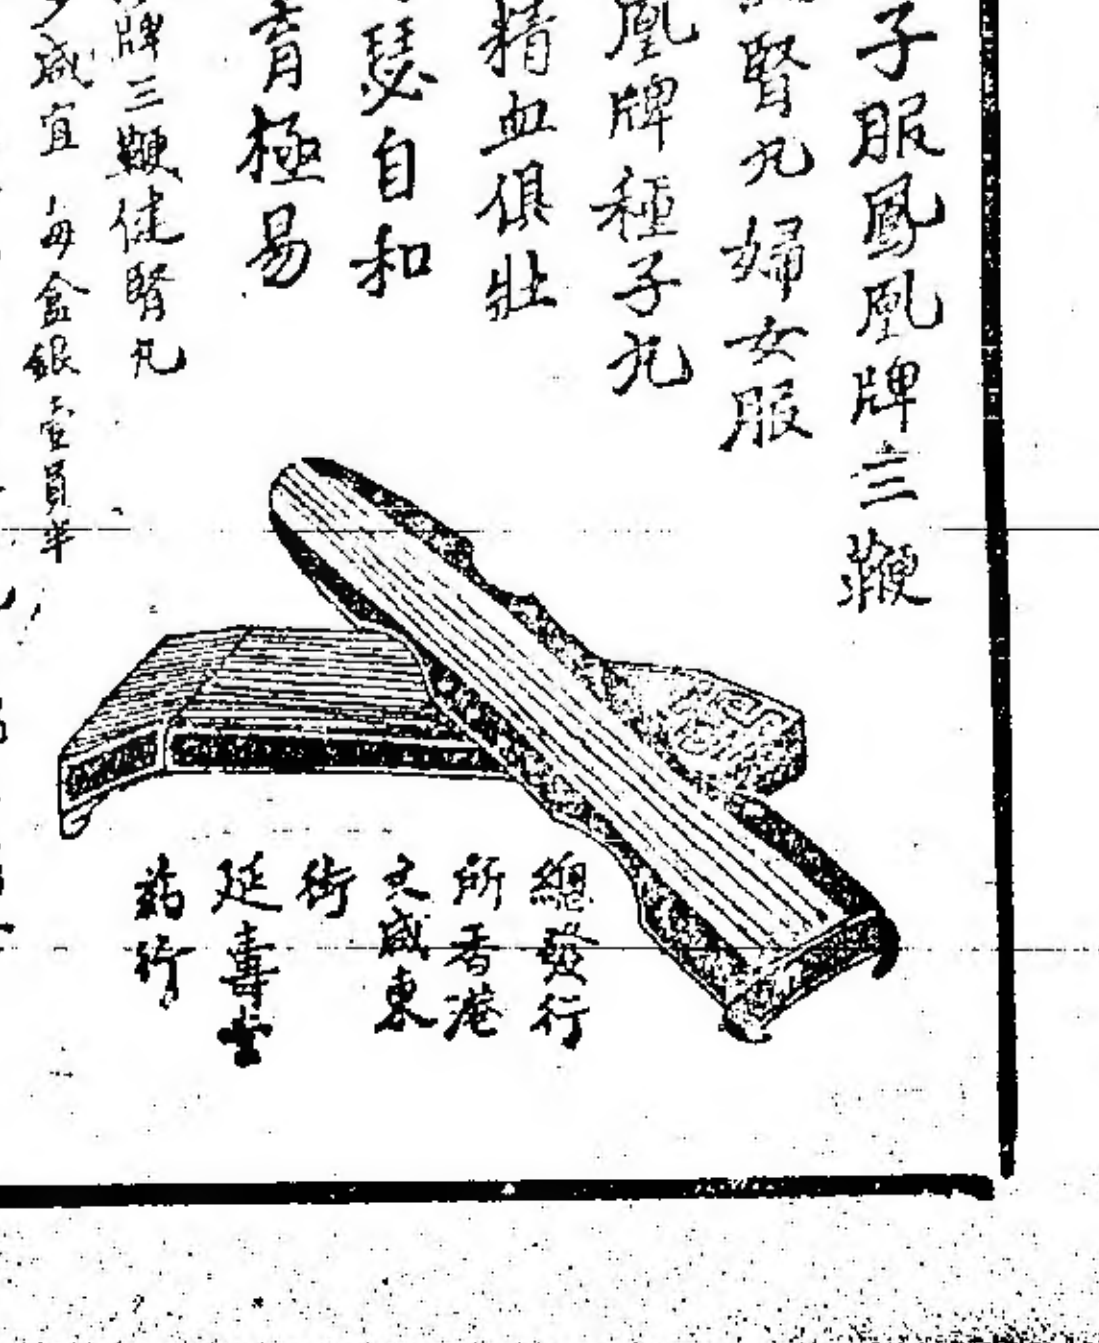 子服鳳凰牌三鞭
腎丸婦女服
凰牌種子丸
精血俱壯
瑟自和
育極易
牌三鞭健腎丸
咸宜每盒銀壹員半
總發行
所香港
文咸東
街
延壽堂
葯行